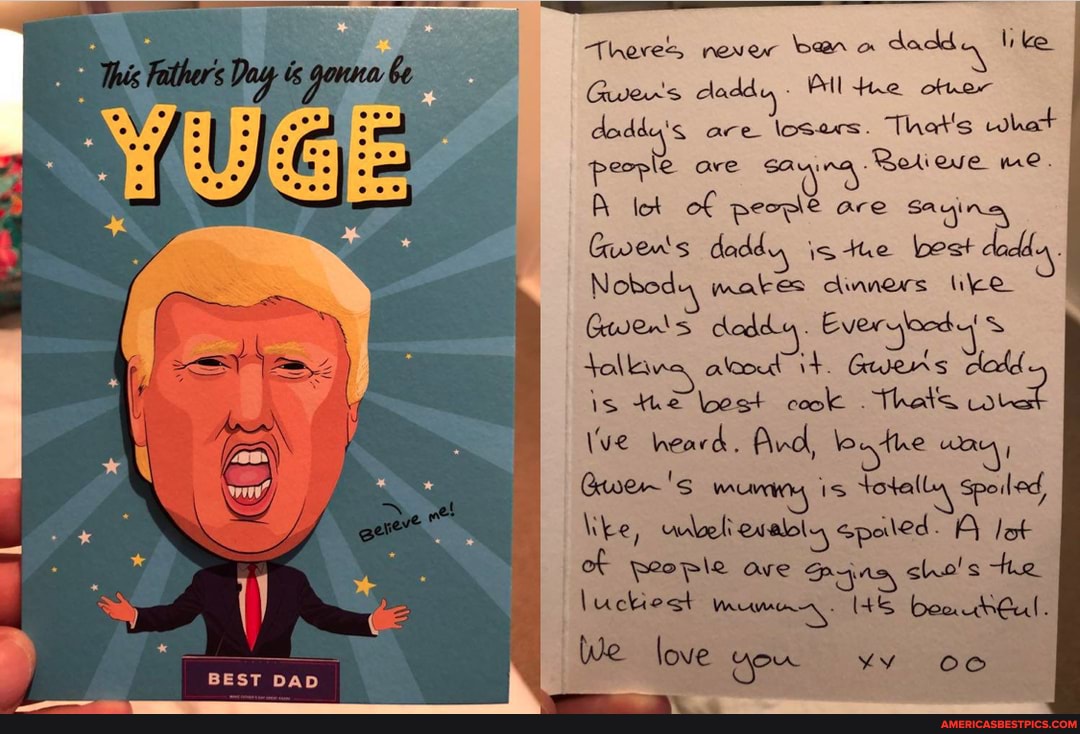 This Father's Day is gonna be
YUGE
Believe me!
BEST DAD
There's never been a daddy like
Gwen's daddy. All the other
daddy's are losers. That's what
people are saying. Believe me.
A lot of people are saying
Gwen's daddy is the best daddy.
Nobody makes dinners like
Gwen's daddy. Everybody's
talking about it. Gwen's daddy
is the best cook. That's what
I've heard. And, by the way,
Gwen's mummy is totally spoiled,
like, unbelievably spoiled. A lot
of people are saying she's the
luckiest mummy. It's beautiful.
We love you xx oo
AMERICASBESTPICS.COM